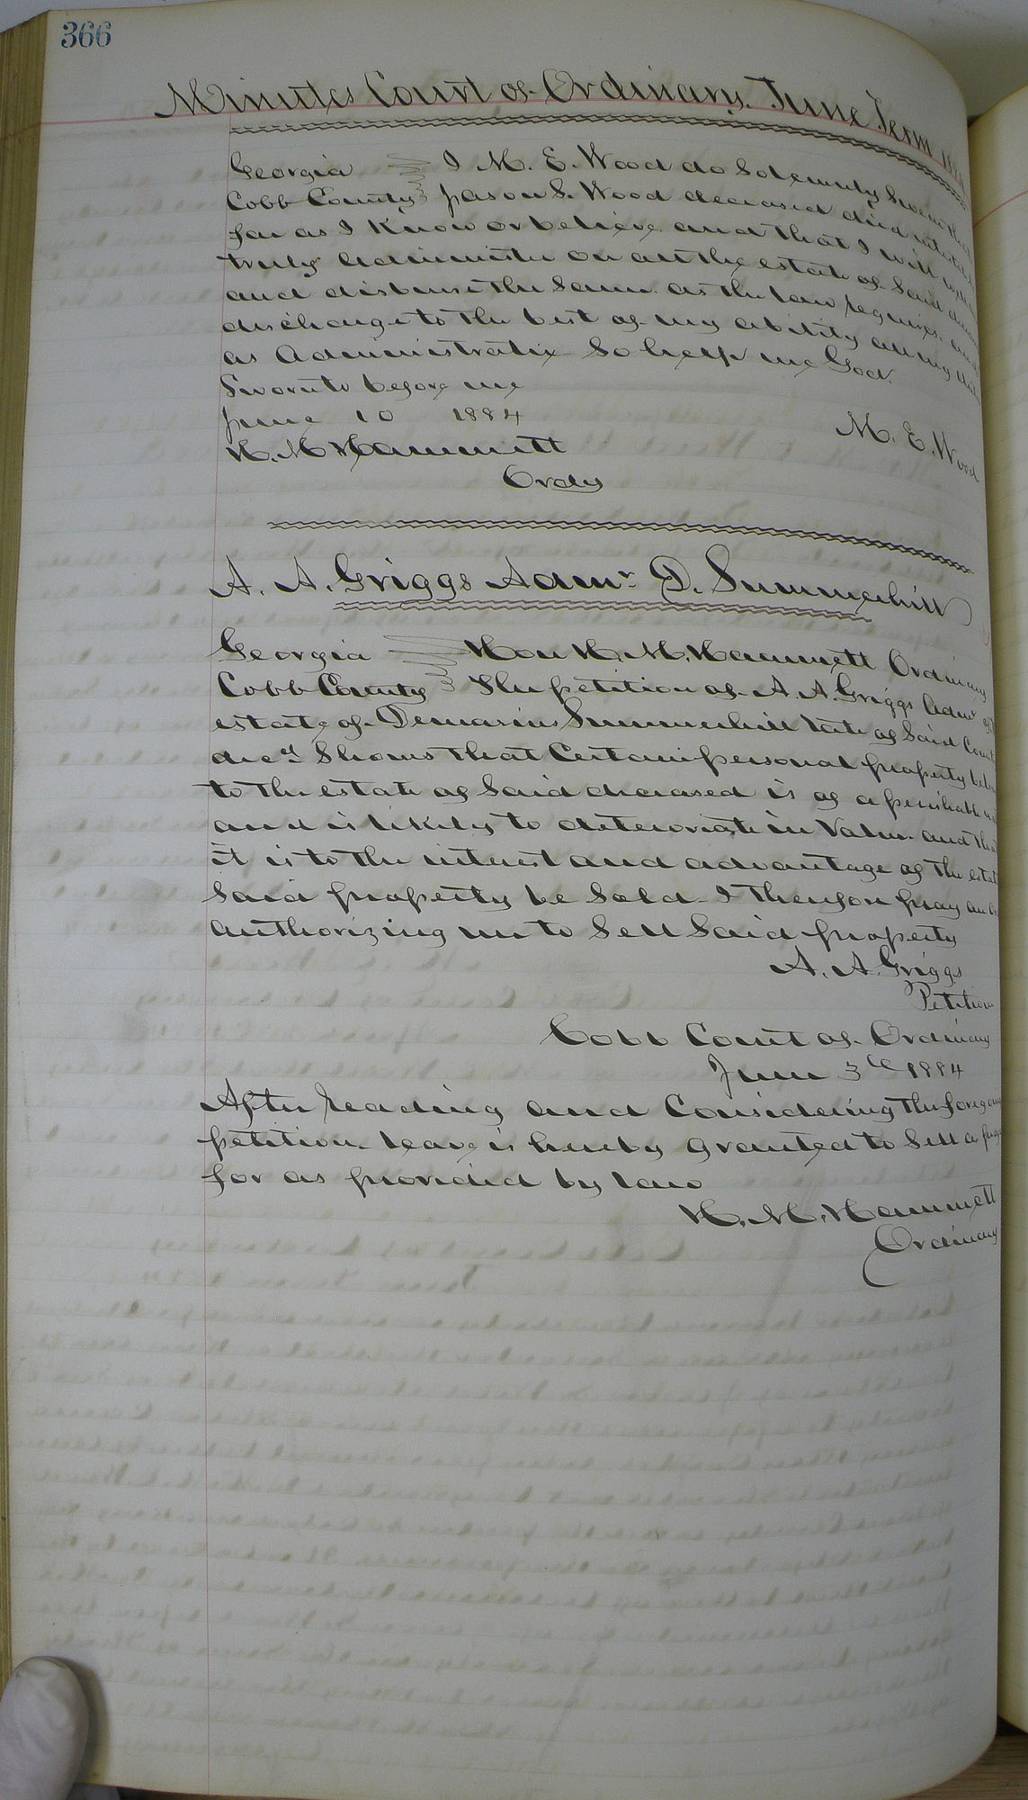 366
Minutes Court of Ordinary. June Term
Georgia I M. E. Wood do Solemnly Swear that
Cobb County Jason S. Wood deceased died
far as I Know or believe and that I will
truly administer on all the estate of Said
and disburse the Same as the law requires. and
discharge to the best of my ability all my
as Administratrix So help me God.
Sworn to before me
June 10 1884 M. E. Wood
H. M. Hammett
Ordy
A. A. Griggs Admr. D. Summerhill
Georgia Hon H. M. Hammett Ordinary
Cobb County The petition of A. A. Griggs Admr of
estate of Summerhill late of Said
decd Shows that Certain personal property
to the estate of Said deceased is of a perishable
and is likely to deteriorate in Value and
it is to the interest and advantage of the
Said property be Sold. I therefore pray an
authorizing me to Sell Said property
A. A. Griggs
Cobb Court of Ordinary
June 3d 1884
After reading and Considering the
petition leave is hereby granted to Sell
for as provided by law
H. M. Hammett
Ordinary